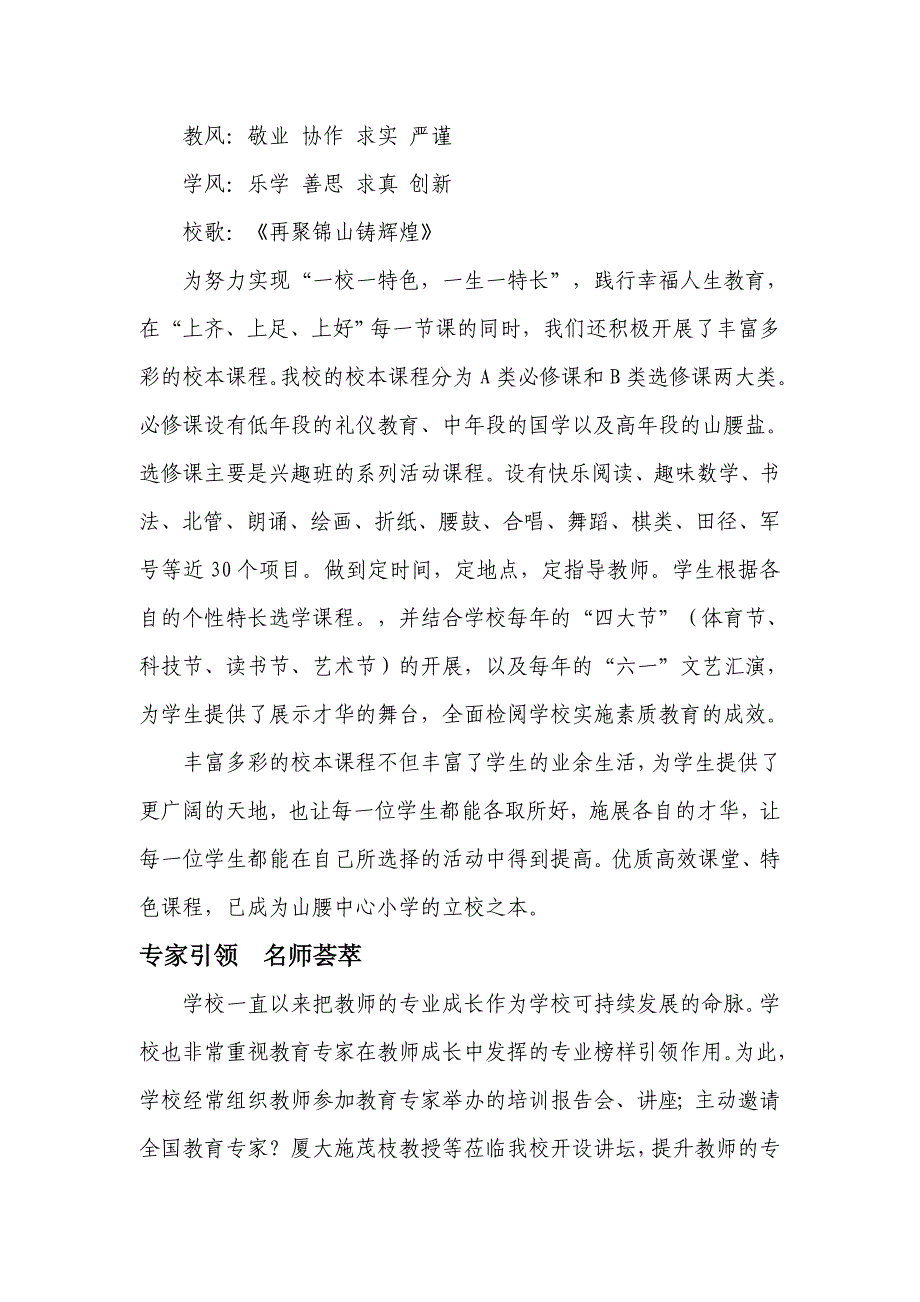 教风：敬业 协作 求实 严谨
学风：乐学 善思 求真 创新
校歌：《再聚锦山铸辉煌》
为努力实现“一校一特色，一生一特长”，践行幸福人生教育，
在“上齐、上足、上好”每一节课的同时，我们还积极开展了丰富多
彩的校本课程。我校的校本课程分为 A 类必修课和 B 类选修课两大类。
必修课设有低年段的礼仪教育、中年段的国学以及高年段的山腰盐。
选修课主要是兴趣班的系列活动课程。设有快乐阅读、趣味数学、书
法、北管、朗诵、绘画、折纸、腰鼓、合唱、舞蹈、棋类、田径、军
号等近 30 个项目。做到定时间，定地点，定指导教师。学生根据各
自的个性特长选学课程。，并结合学校每年的“四大节”（体育节、
科技节、读书节、艺术节）的开展，以及每年的“六一”文艺汇演，
为学生提供了展示才华的舞台，全面检阅学校实施素质教育的成效。
丰富多彩的校本课程不但丰富了学生的业余生活，为学生提供了
更广阔的天地，也让每一位学生都能各取所好，施展各自的才华，让
每一位学生都能在自己所选择的活动中得到提高。优质高效课堂、特
色课程，已成为山腰中心小学的立校之本。
专家引领　名师荟萃
学校一直以来把教师的专业成长作为学校可持续发展的命脉。学
校也非常重视教育专家在教师成长中发挥的专业榜样引领作用。为此，
学校经常组织教师参加教育专家举办的培训报告会、讲座；主动邀请
全国教育专家？厦大施茂枝教授等莅临我校开设讲坛，提升教师的专